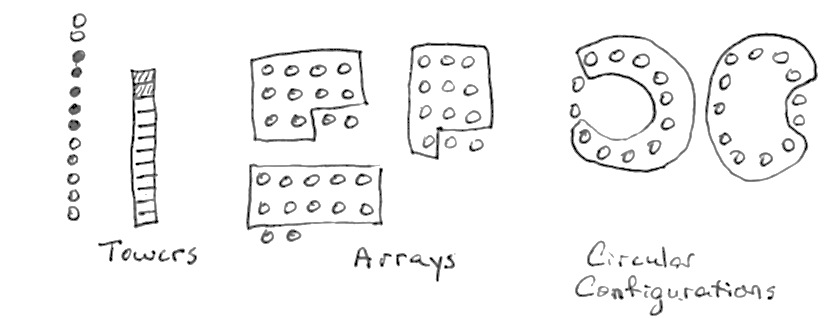 Towers
Arrays
Circular
Configurations